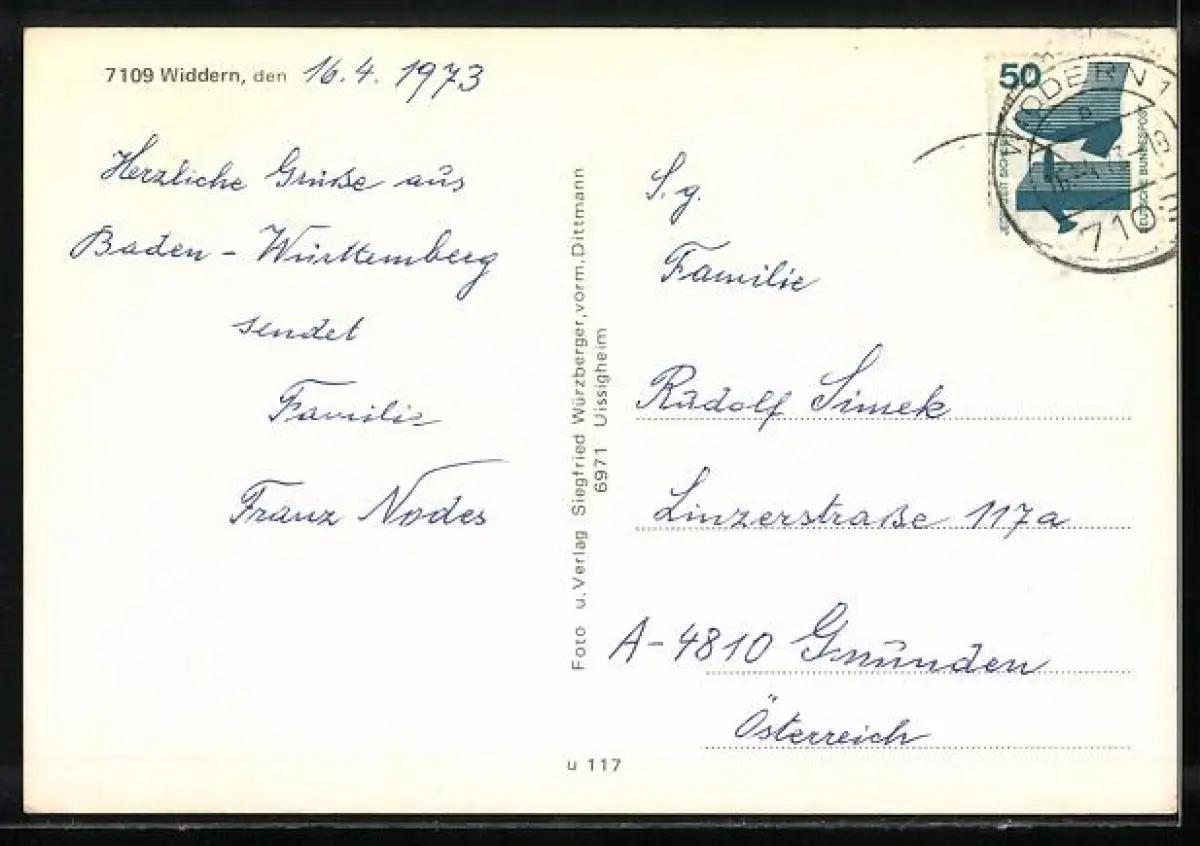 7109 Widdern, den 16.4.1973
Herzliche Grüße aus
Baden-Württemberg
sendet
Familie
Franz Nodes
Foto u. Verlag Siegfried Würzberger, vorm. Dittmann
6971 Uissigheim
u 117
50
JEDERZEIT SICHERHEIT
DEUTSCHE BUNDESPOST
WIDDERN 1
710
S.g.
Familie
Rudolf Simek
Linzerstraße 117a
A-4810 Gmünden
Österreich